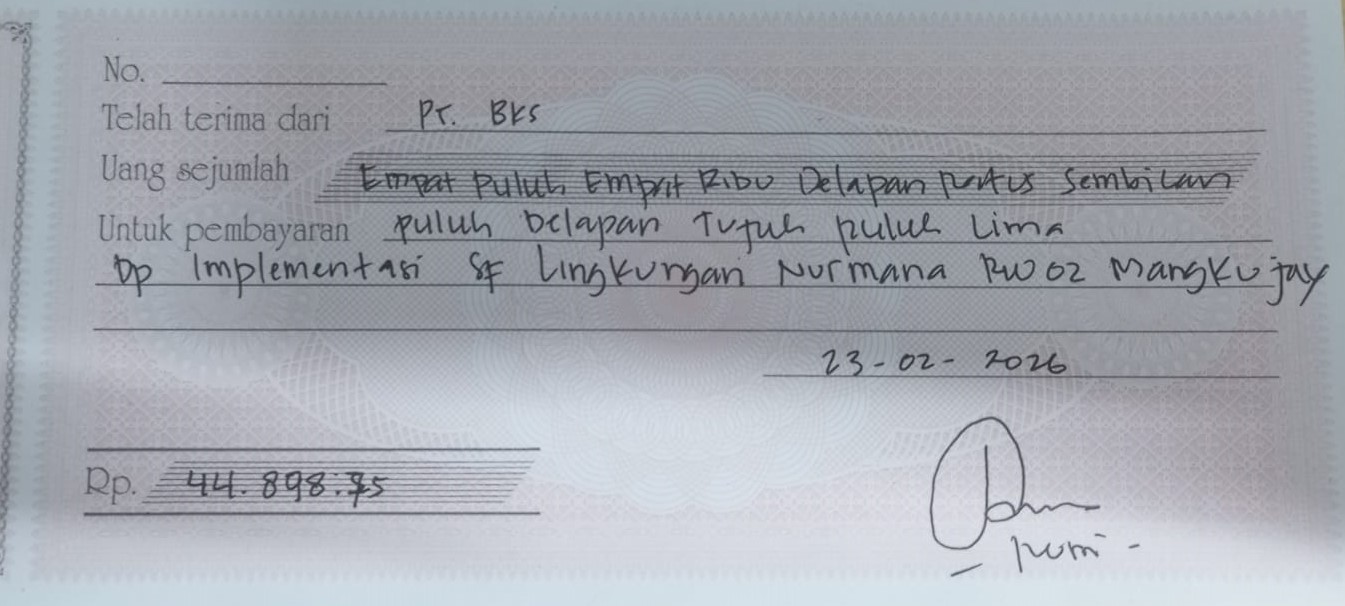 No.
Telah terima dari PT. BKS
Uang sejumlah Empat Puluh Empat Ribu Delapan Ratus Sembilan
Untuk pembayaran puluh Delapan Tujuh puluh Lima
Dp Implementasi SF Lingkungan Nurmana RW 02 Mangkujay
23-02-2026
Rp. 44.898.75